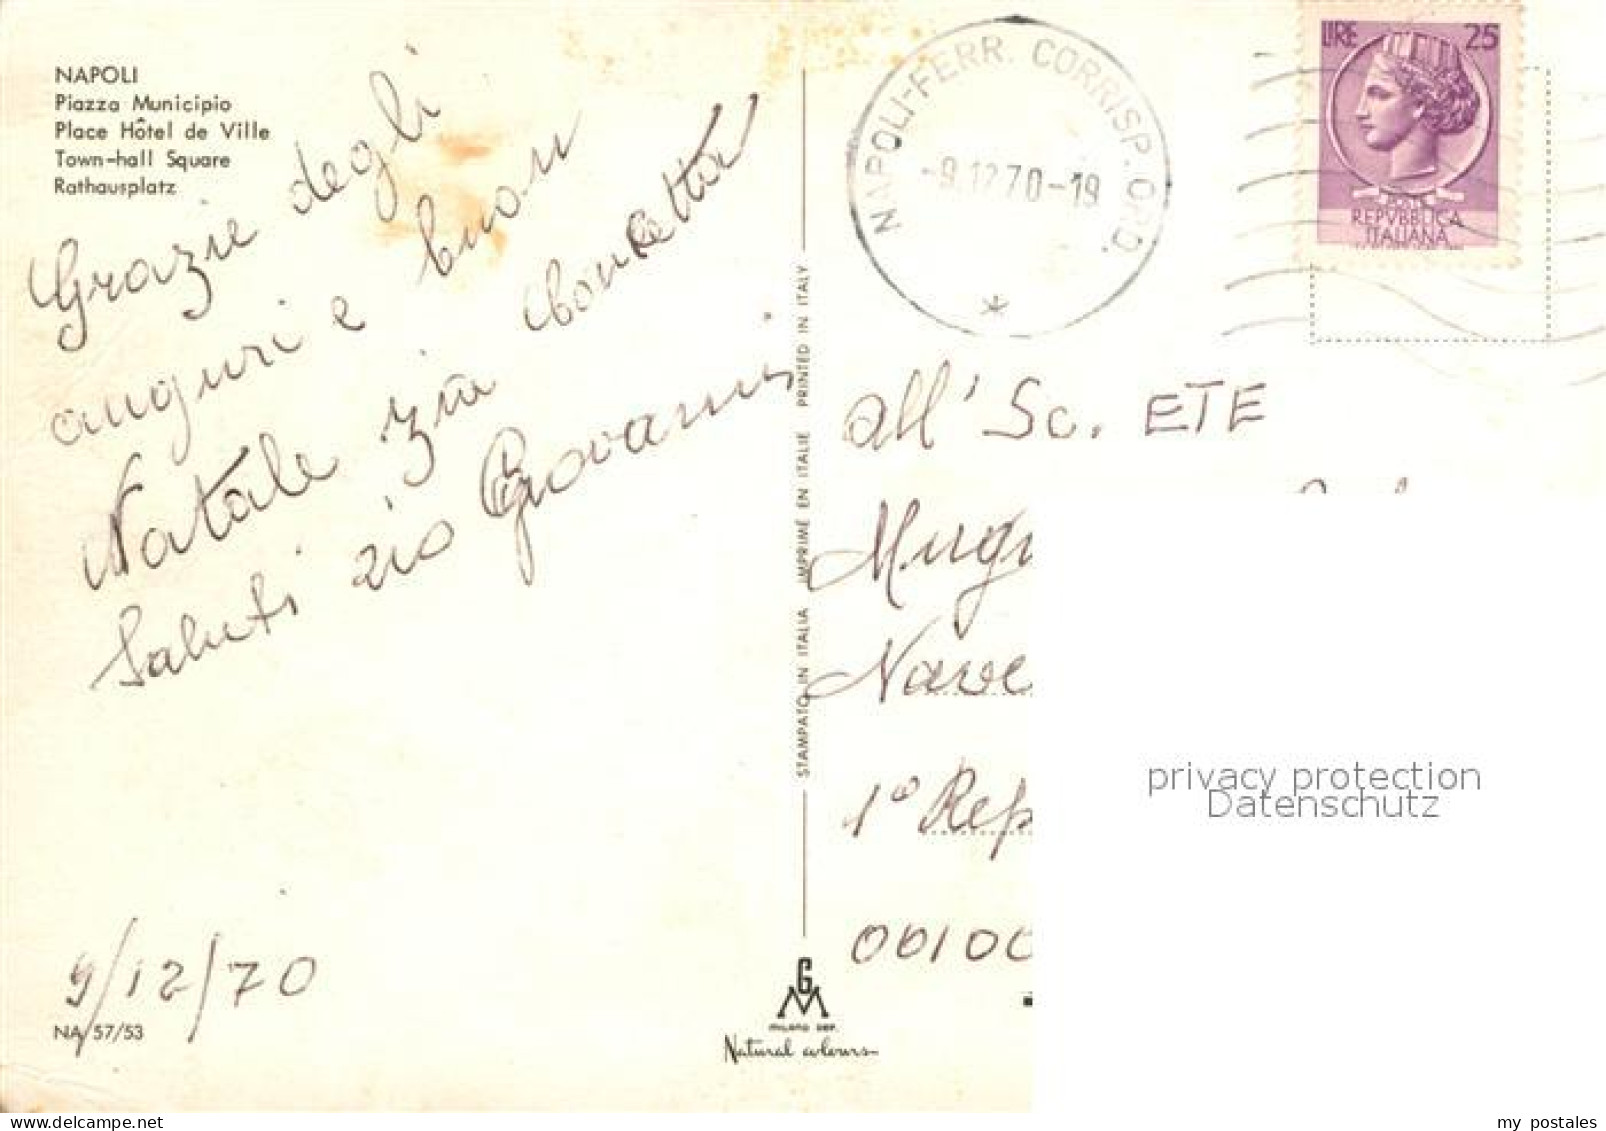 NAPOLI
Piazza Municipio
Place Hôtel de Ville
Town-hall Square
Rathausplatz
Grazie degli
auguri e buon
Natale zia Concetta
Saluti zio Giovanni
9/12/70
NA 57/53
STAMPATO IN ITALIA IMPRIMÉ EN ITALIE PRINTED IN ITALY
MILANO DEP.
Natural colours
NAPOLI-FERR. CORRISP. ORD.
-9.12.70-19
LIRE 25
POSTE
REPVBBLICA
ITALIANA
all' Sc. ETE
Nave
1° Rep
00100
privacy protection
Datenschutz
www.delcampe.net
my_postales